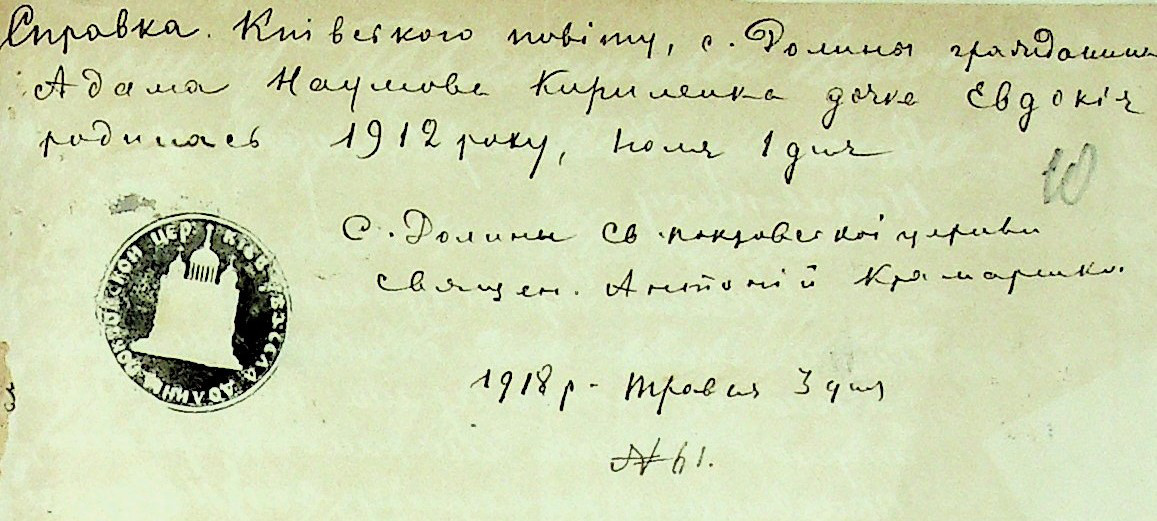 Справка. Київського повіту, с. Долины гражданина
Адама Наумова Кириленка дочка Евдокія
родилась 1912 року, Июля 1 дня
10
С. Долины Св. покровської церкви
священ. Антоній Крамаренко.
1918 р. Травня 3 дня
№ 61.